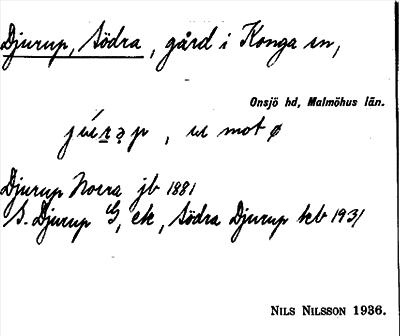 Djurup, Södra, gård i Konga sn,
Onsjö hd, Malmöhus län.
mot ø
Djurup Norra jb 1881
S. Djurup G, ek, Södra Djurup kb 1931
NILS NILSSON 1936.